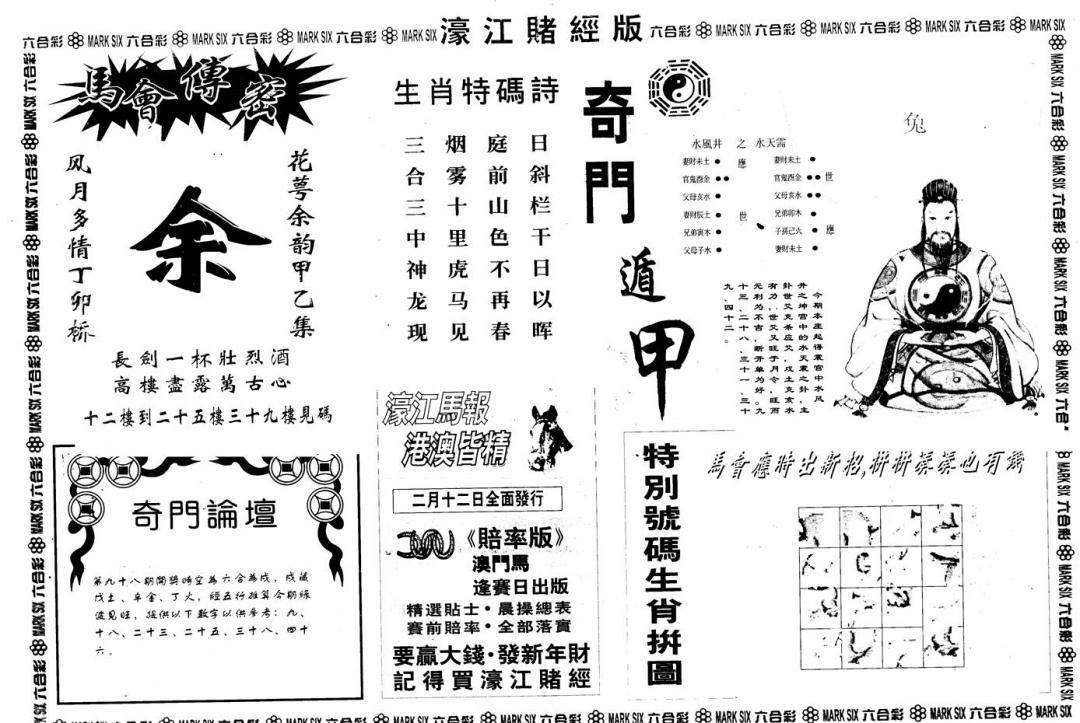 濠江賭經版
六合彩 MARK SIX 六合彩 MARK SIX 六合彩 MARK SIX 六合彩 MARK SIX
六合彩 MARK SIX 六合彩 MARK SIX 六合彩 MARK SIX 六合彩 MARK SIX
馬會傳密
花萼余韵甲乙集
余
风月多情丁卯桥
長劍一杯壯烈酒
高樓盡露萬古心
十二樓到二十五樓三十九樓見碼
生肖特碼詩
日斜栏干日以晖
庭前山色不再春
烟雾十里虎马见
三合三中神龙现
奇門
遁甲
兔
水風井 之 水天需
妻財未土 應 妻財未土
官鬼酉金 官鬼酉金 世
父母亥水 父母亥水
妻財辰土 世 兄弟卯木
兄弟寅木 子孫己火 應
父母子水 妻財未土
今期本座起得震宫中水风
井之坤宫中的水天需之卦,主
卦世爻克条应爻,戌土克亥水
有力,世爻又旺于月令,旺
九
十三、二十八、三十一、三十
九、四十二。
濠江馬報
港澳皆精
二月十二日全面發行
《賠率版》
澳門馬
逢賽日出版
精選貼士·晨操總表
賽前賠率·全部落實
要贏大錢·發新年財
記得買濠江賭經
奇門論壇
第九十八期開獎時空為六合為戌,戌藏
戊土、辛金、丁火,經五行推算今期綠
波見旺,提供以下數字以供參考:九、
十八、二十三、二十五、三十八、四十
六。
特別號碼生肖拼圖
馬會應時出新招,拼拼湊湊也有錢